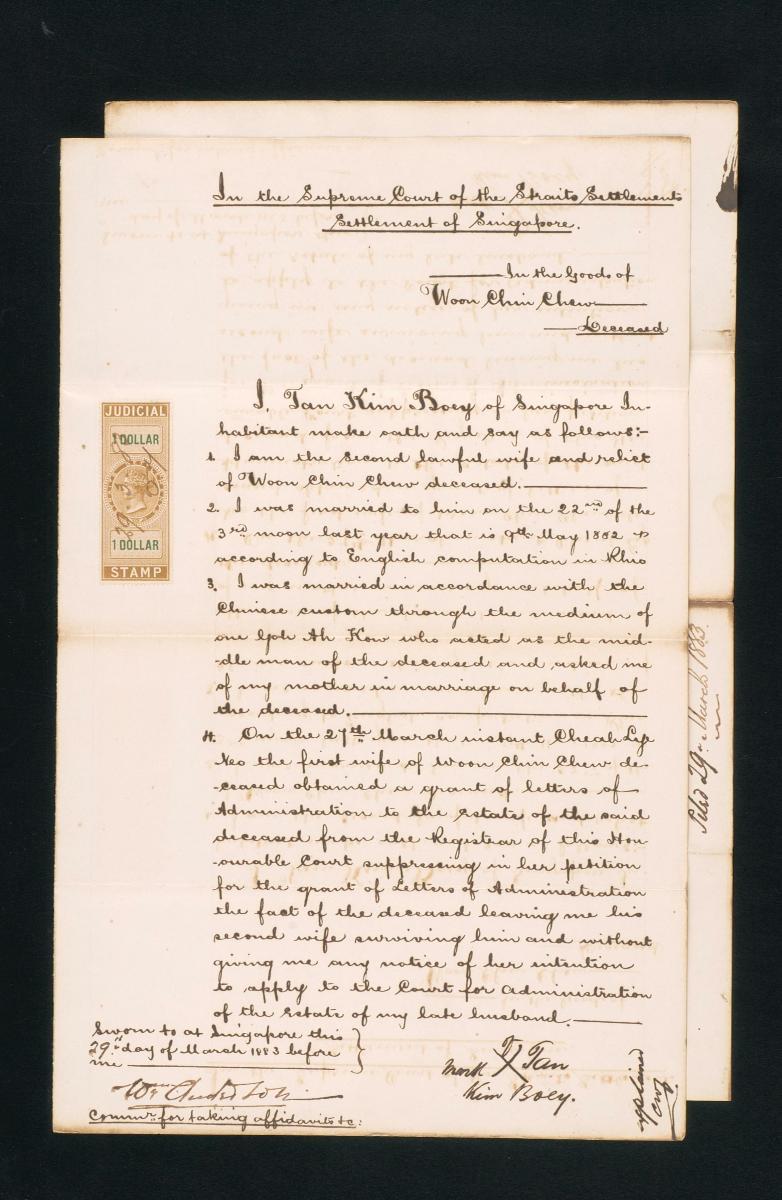 In the Supreme Court of the Straits Settlements
Settlement of Singapore.
In the Goods of
Woon Chin Chew
Deceased
I, Tan Kim Boey of Singapore In-
habitant make oath and say as follows:-
1. I am the second lawful wife and relict
of Woon Chin Chew deceased.
2. I was married to him on the 22nd of the
3rd moon last year that is 9th May 1882
according to English computation in Rhio
3. I was married in accordance with the
Chinese custom through the medium of
one Goh Ah Kow who acted as the mid-
-dle man of the deceased and asked me
of my mother in marriage on behalf of
the deceased.
4. On the 27th March instant Cheah
Neo the first wife of Woon Chin Chew de-
-ceased obtained a grant of letters of
Administration to the Estate of the said
deceased from the Registrar of this Hon-
-ourable Court suppressing in her petition
for the grant of Letters of Administration
the fact of the deceased leaving me his
second wife surviving him and without
giving me any notice of her intention
to apply to the Court for Administration
of the Estate of my late husband.
Sworn to at Singapore this
29th day of March 1883 before
me
Commr for taking affidavits &c:
mark X Tan
Kim Boey.
JUDICIAL
1 DOLLAR
1 DOLLAR
STAMP
Filed 29th March 1883.